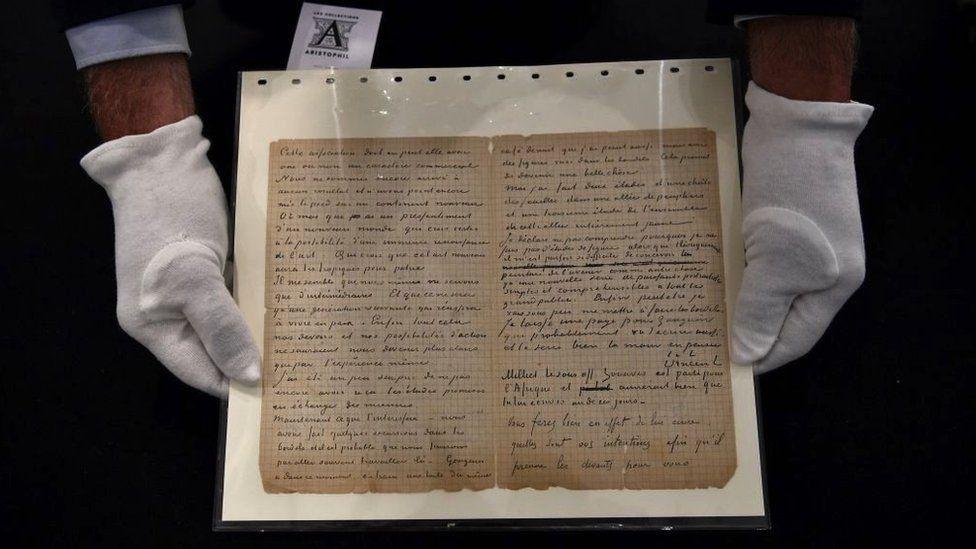 LES COLLECTIONS
A
ARISTOPHIL
Cette association dont on peut elle avoir
oui ou non un caractère commercial
Nous ne sommes encore arrivé à
aucun résultat et n'avons point encore
mis le pied sur un continent nouveau
Or moi qui ai un pressentiment
d'un nouveau monde qui crois certes
à la possibilité d'une immense renaissance
de l'art. Qui crois que cet art nouveau
aura les tropiques pour patrie
Il me semble que nous mêmes ne servons
que d'intermédiaires. Et que ce ne sera
qu'une génération suivante qui réussira
à vivre en paix. Enfin tout cela
nos devoirs et nos possibilités d'action
ne sauraient nous devenir plus clairs
que par l'expérience même.
J'ai été un peu surpris de ne pas
encore avoir reçu les études promises
en échange des miennes
Maintenant ce qui t'interessera – nous
avons fait quelques excursions dans les
bordels et il est probable que nous finirons
par aller souvent travailler là. Gauguin
a dans ce moment en train une toile du même
café de nuit que j'ai peint aussi mais avec
des figures vues dans les bordels. Cela promet
de devenir une belle chose
Moi j'ai fait deux études d'une chute
des feuilles dans une allée de peupliers
et une troisième étude de l'ensemble
de cette allée entièrement jaune
Je déclare ne pas comprendre pourquoi je ne
fais pas d'études de figure alors que théoriquement
il m'est parfois si difficile de concevoir la
peinture de l'avenir comme autre chose
qu'une nouvelle serie de puissants portraitistes
simples et compréhensibles à tout le
grand public. Enfin peut être je
vais sous peu me mettre à faire les bordels
Je laisse une page pour Gauguin
qui probablement va t'écrire aussi
et te serre bien la main en pensée
t. à t.
Vincent
Milliet le sous off. Zouaves est parti pour
l'Afrique et aimerait bien que
tu lui écrives un de ces jours.
Vous ferez bien en effet de lui écrire
quelles sont vos intentions afin qu'il
prenne les devants pour vous